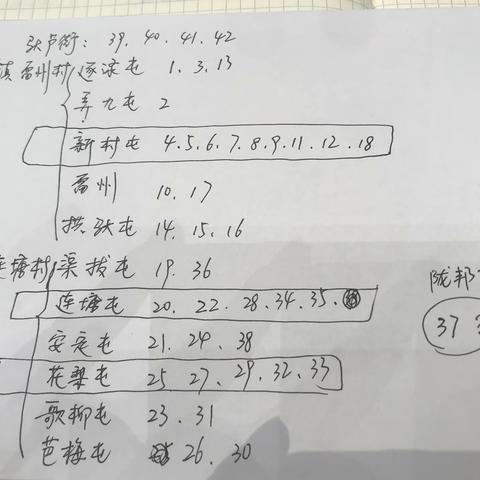 张卢街：39、40、41、42
镇雷州村 逐录屯 1、3、13
弄九屯 2
新村屯 4、5、6、7、8、9、11、12、18
雷州 10、17
拱跃屯 14、15、16
连塘村 渠拔屯 19、36
连塘屯 20、22、28、34、35、
陇邦
安定屯 21、24、38
37
花梨屯 25、27、29、32、33
歌柳屯 23、31
芭梅屯 26、30